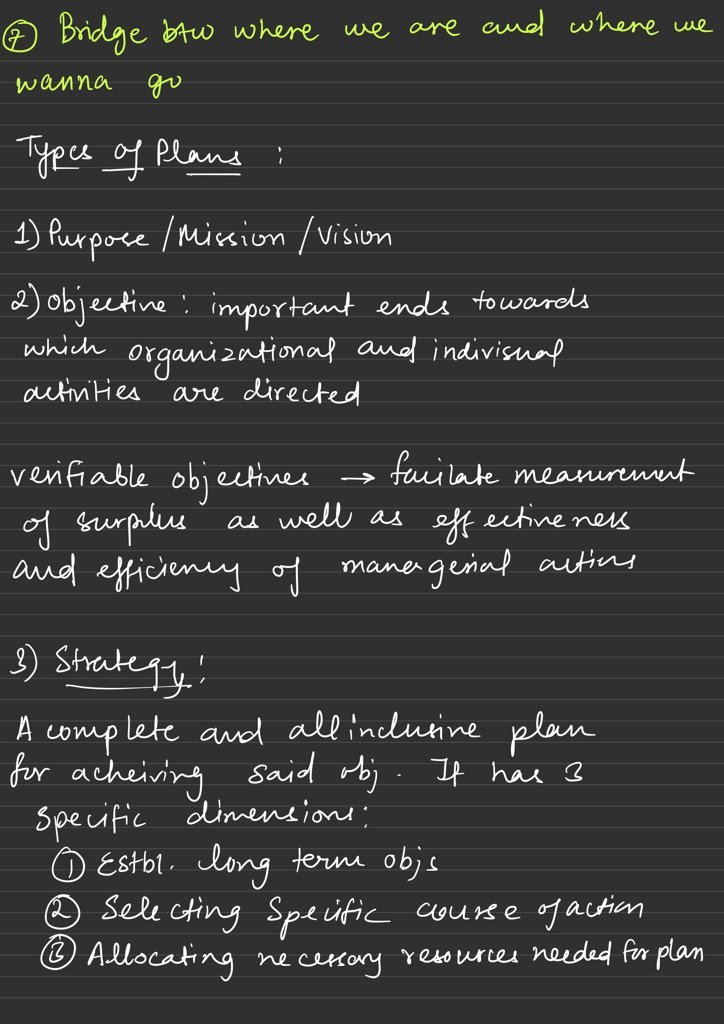 ⑦ Bridge btw where we are and where we
wanna go
Types of Plans :
1) Purpose / Mission / Vision
2) Objective : important ends towards
which organizational and indivisual
activities are directed
verifiable objectives → facilate measurement
of surplus as well as effectiveness
and efficiency of managerial actions
3) Strategy :
A complete and all inclusive plan
for acheiving said obj. It has 3
specific dimensions :
① Estbl. long term objs
② Selecting Specific course of action
③ Allocating necessary resources needed for plan